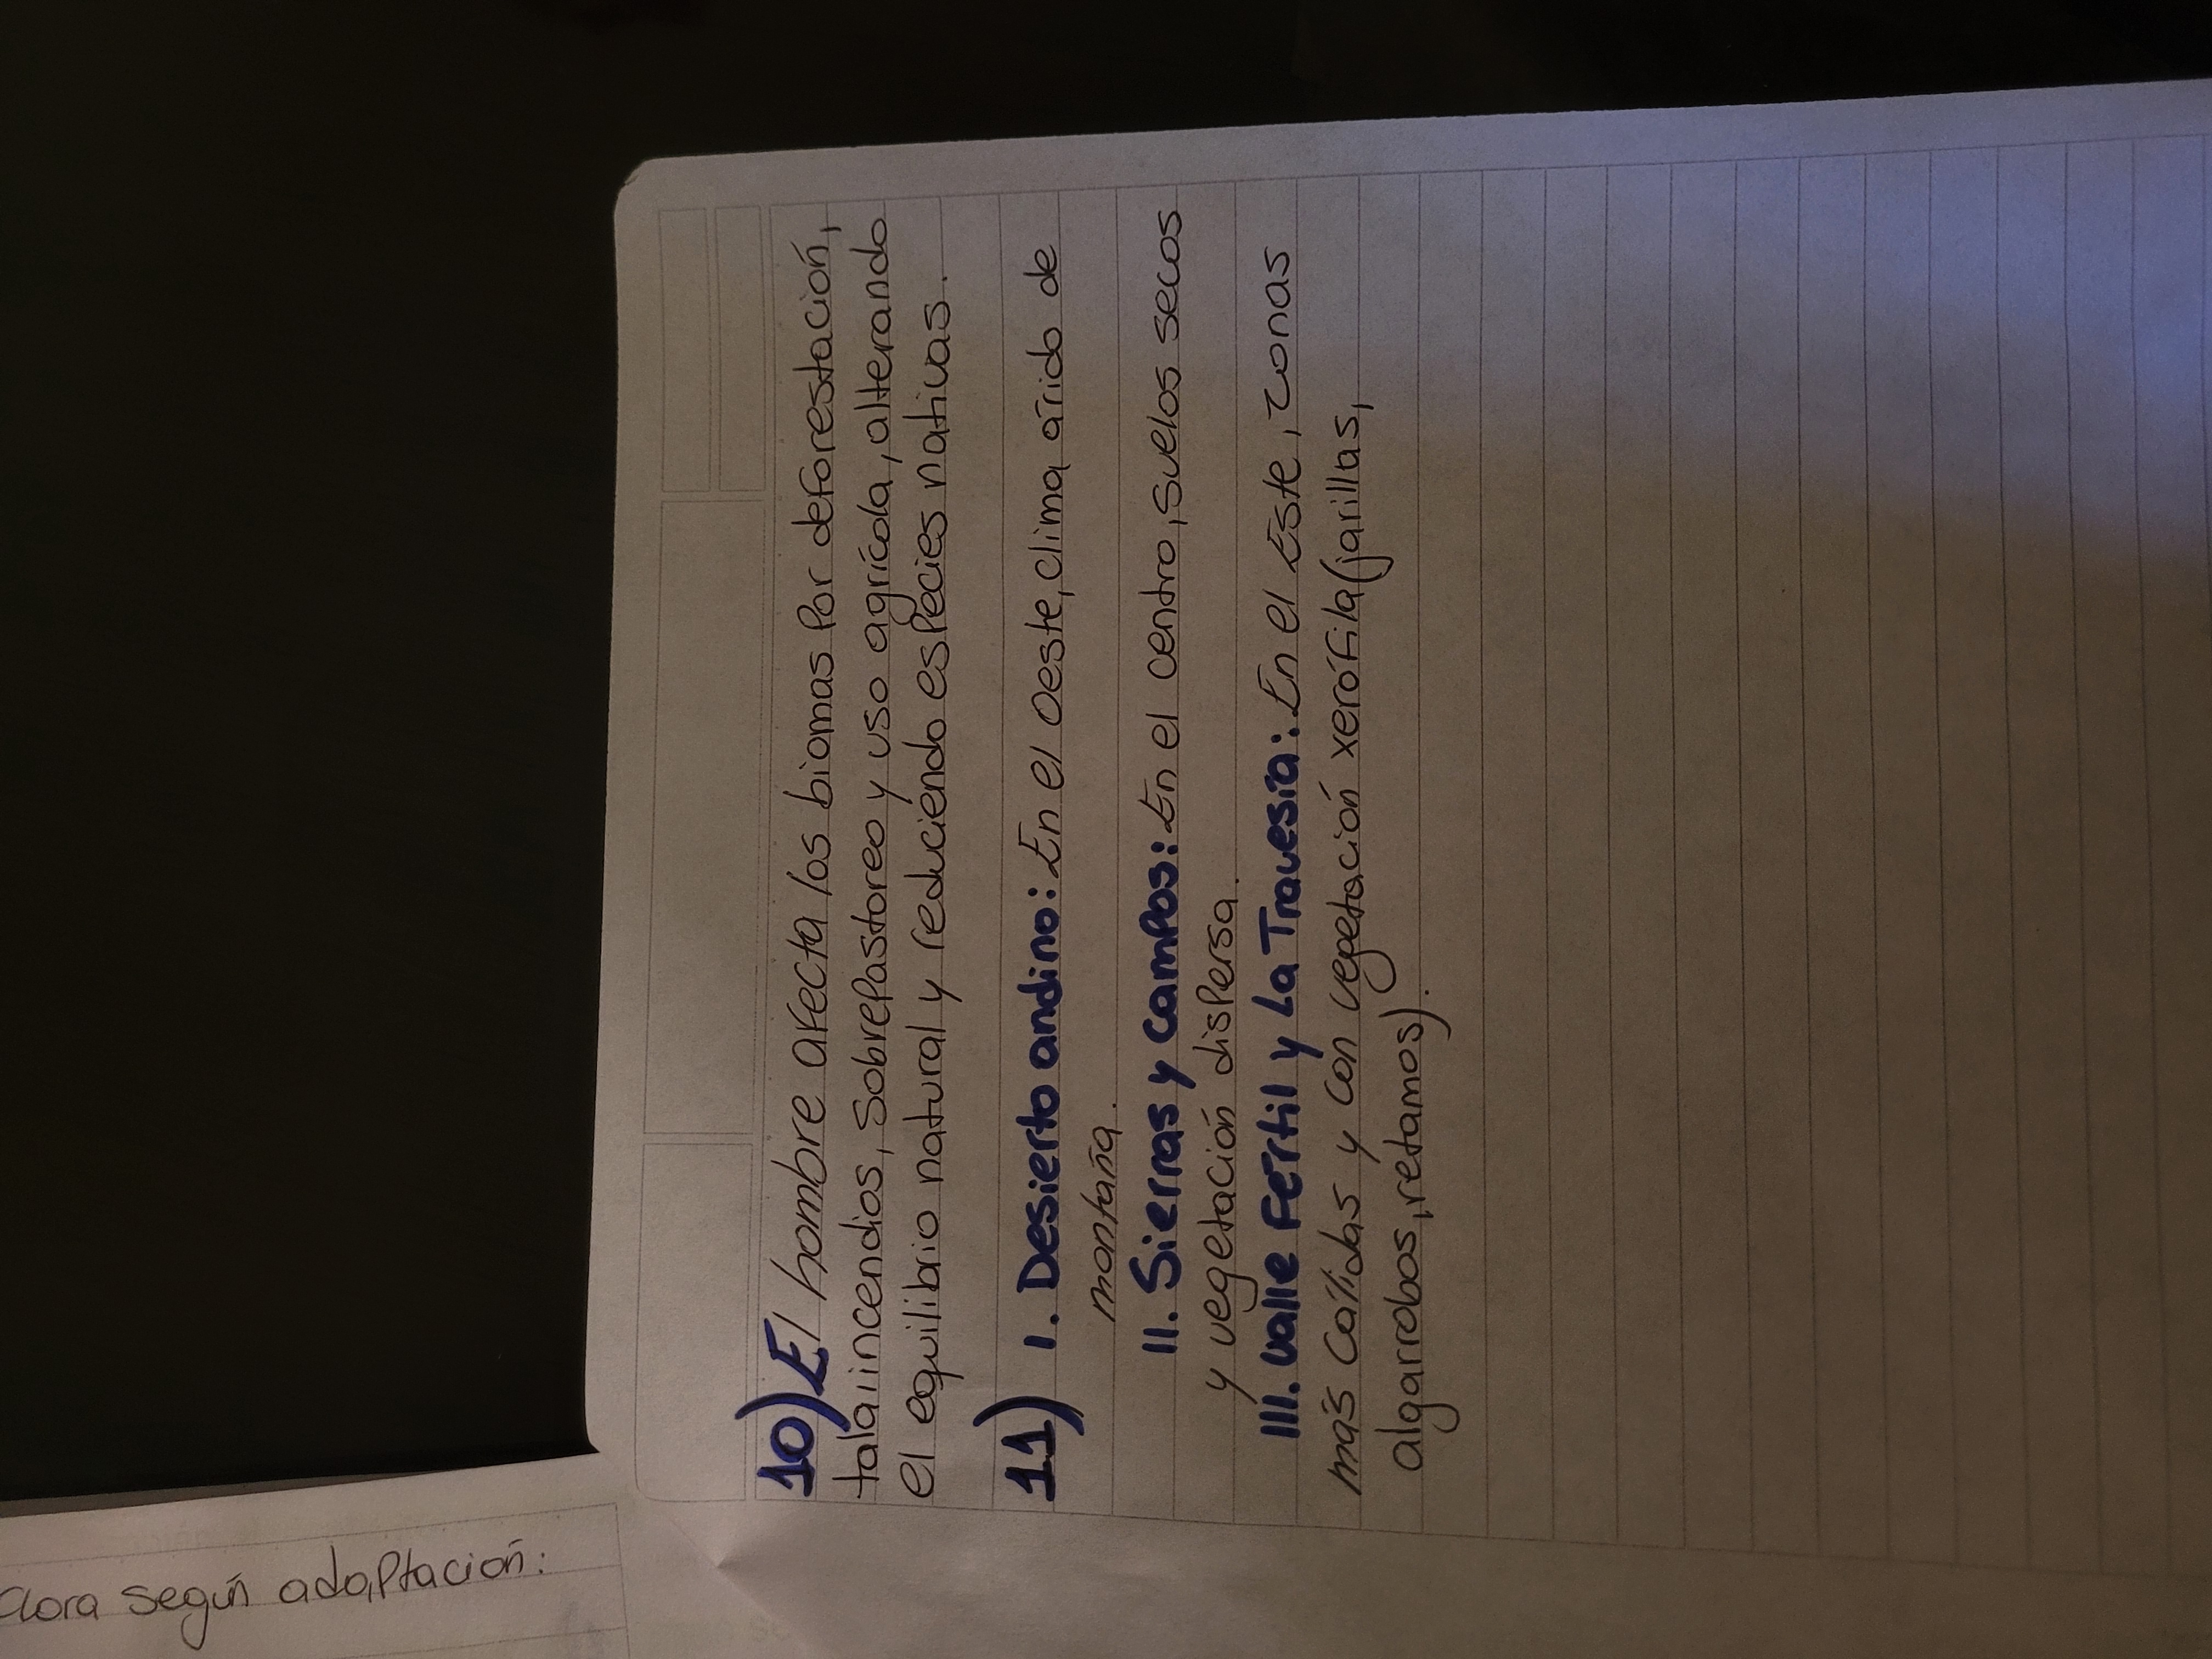 10) El hombre afecta los biomas por deforestación,
tala, incendios, sobrepastoreo y uso agrícola, alterando
el equilibrio natural y reduciendo especies nativas.
11) I. Desierto andino: En el Oeste, clima árido de
montaña.
II. Sierras y campos: En el centro, suelos secos
y vegetación dispersa.
III. Valle Fértil y La Travesía: En el Este, zonas
más cálidas y con vegetación xerófila (jarillas,
algarrobos, retamos).
según adaptación: